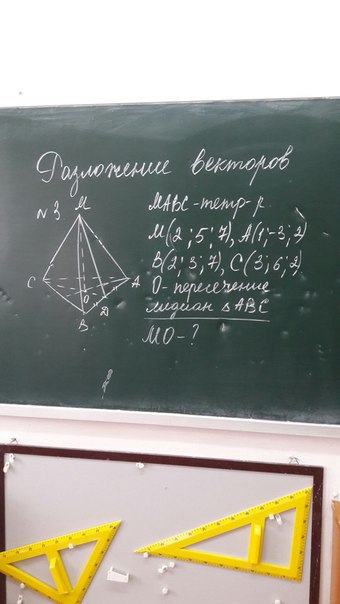 Разложение векторов
№3
M
C
A
O
D
B
MABC-тетр-р.
M(2;5;7), A(1;-3;2)
B(2;3;7), C(3;6;2)
O- пересечение
медиан △ABC
MO-?